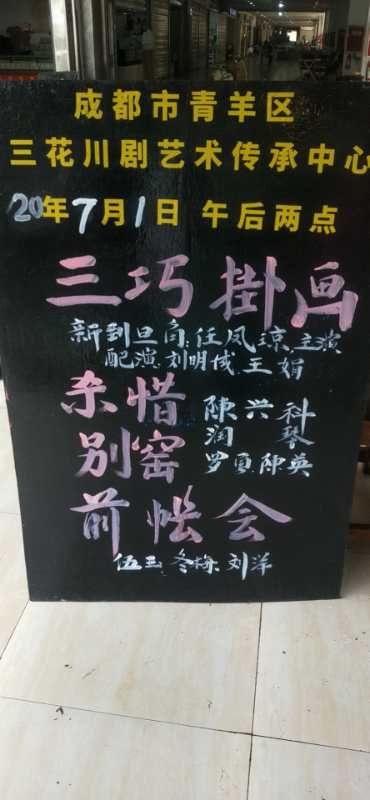 成都市青羊区
三花川剧艺术传承中心
20年7月1日 午后两点
三巧掛画
新到旦角:任凤琼.主演
配演.刘明彧.王娟
杀惜 陳兴科
润琴
别窑 罗勇.陳英
前帐会
伍玉.冬梅.刘洋